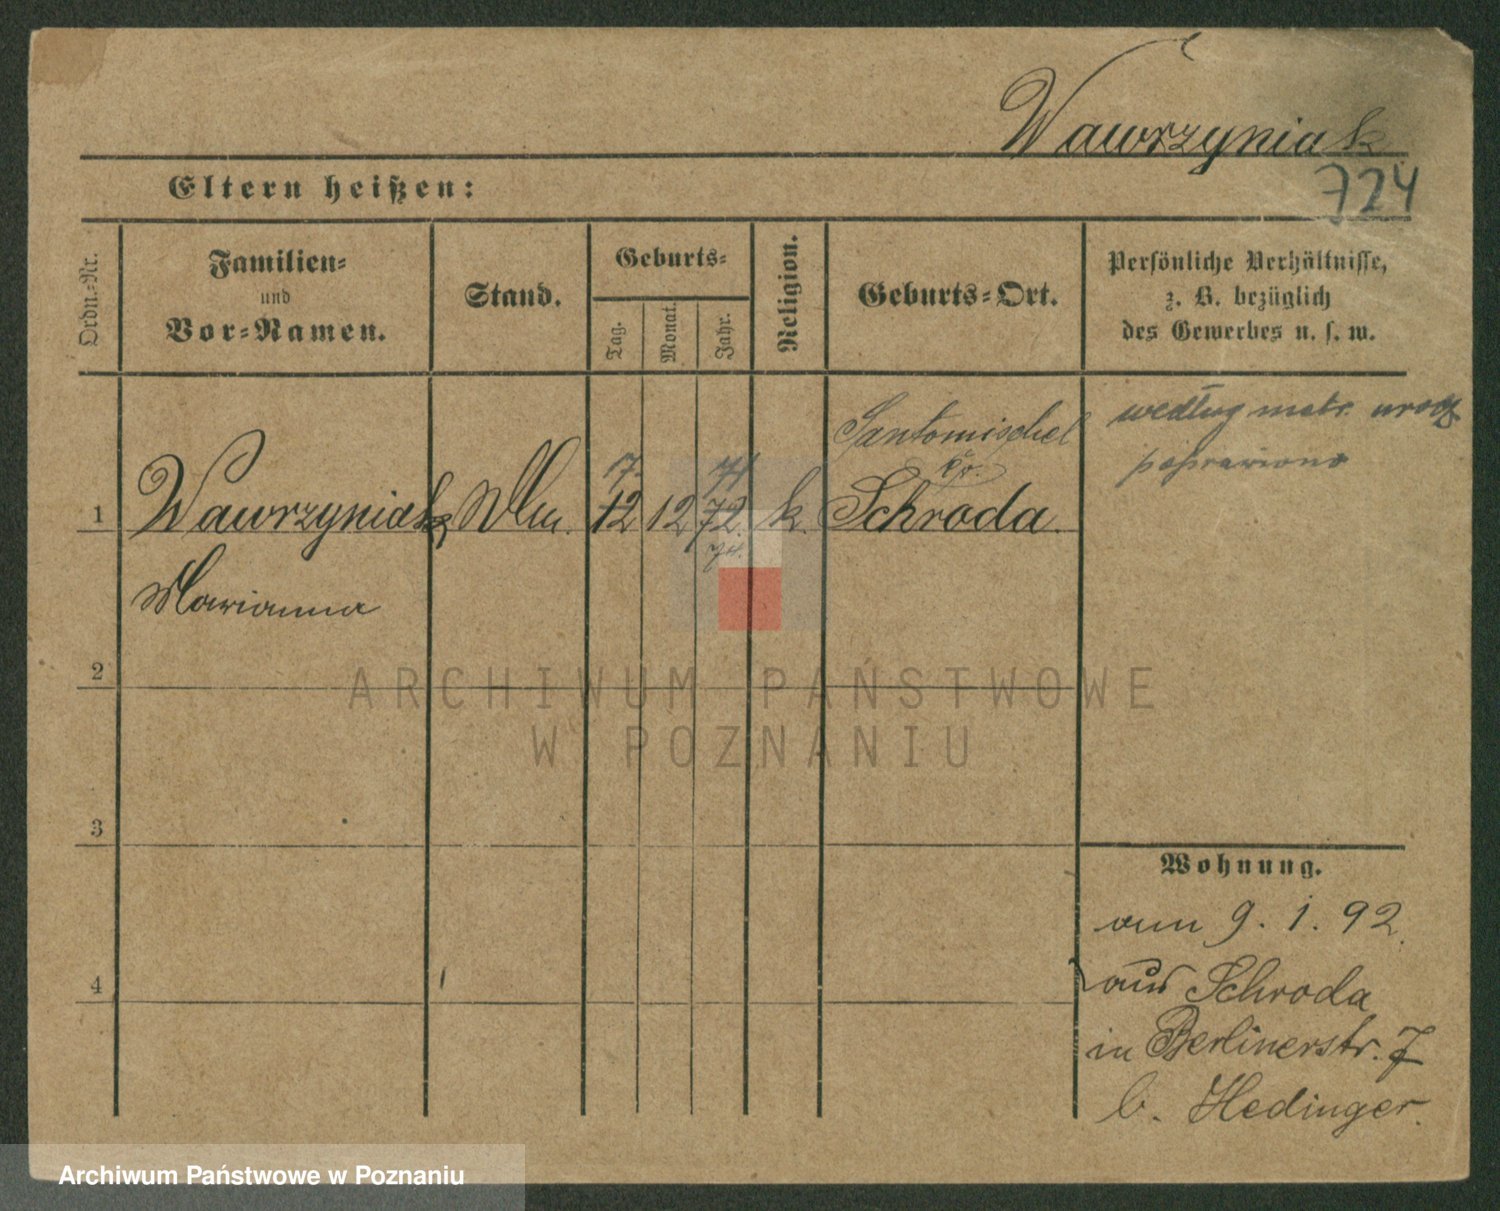 Wawrzyniak
724
Eltern heißen:
Ordn.-Nr.
Familien-
und
Vor-Namen.
Stand.
Geburts-
Tag.
Monat.
Jahr.
Religion.
Geburts-Ort.
Persönliche Verhältnisse,
z. B. bezüglich
des Gewerbes u. s. w.
według metr. urodz.
poprawiono
Santomischel
Kr.
17. 71
1 Wawrzyniak 12 12 72. k. Schroda
74.
Marianna
2
ARCHIWUM PAŃSTWOWE
W POZNANIU
3
Wohnung.
am 9. 1. 92.
aus Schroda
4
in Berlinerstr. 7
b. Hedinger.
Archiwum Państwowe w Poznaniu